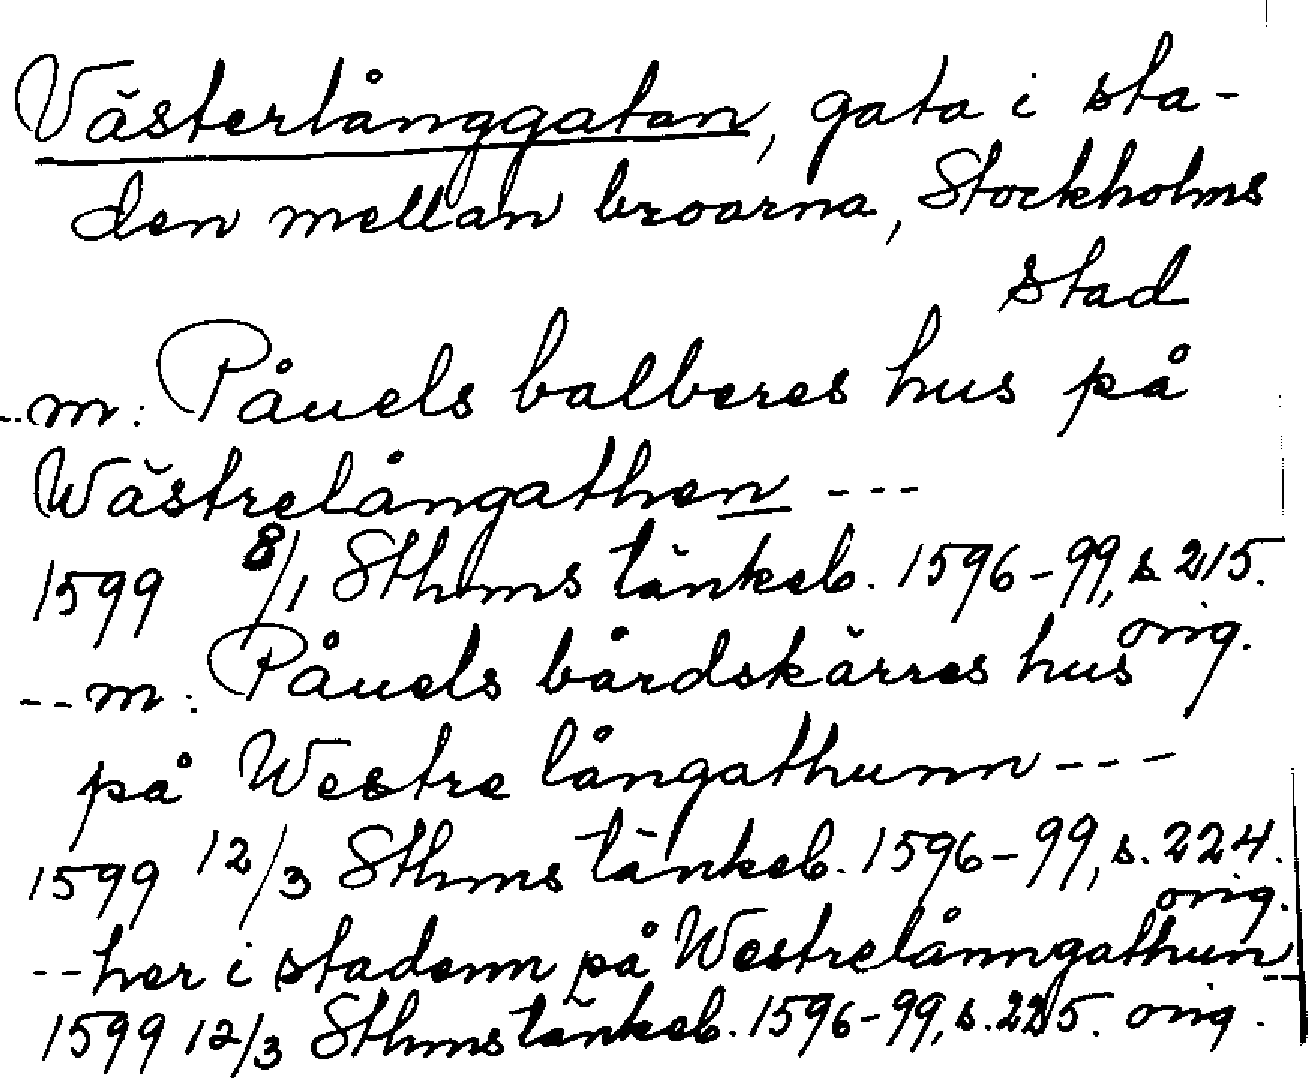 Västerlånggatan, gata i sta-
den mellan broarna, Stockholms
stad
--m: Påuels balberes hus på
Wästrelångathen ---
1599 8/1 Sthms tänkeb. 1596-99, s. 215.
orig.
--m: Påuels bårdskärres hus
på Westre långathunn ---
1599 12/3 Sthms tänkeb. 1596-99, s. 224.
orig.
--her i stadenn på Westrelånngathun--
1599 12/3 Sthms tänkeb. 1596-99, s. 225. orig.